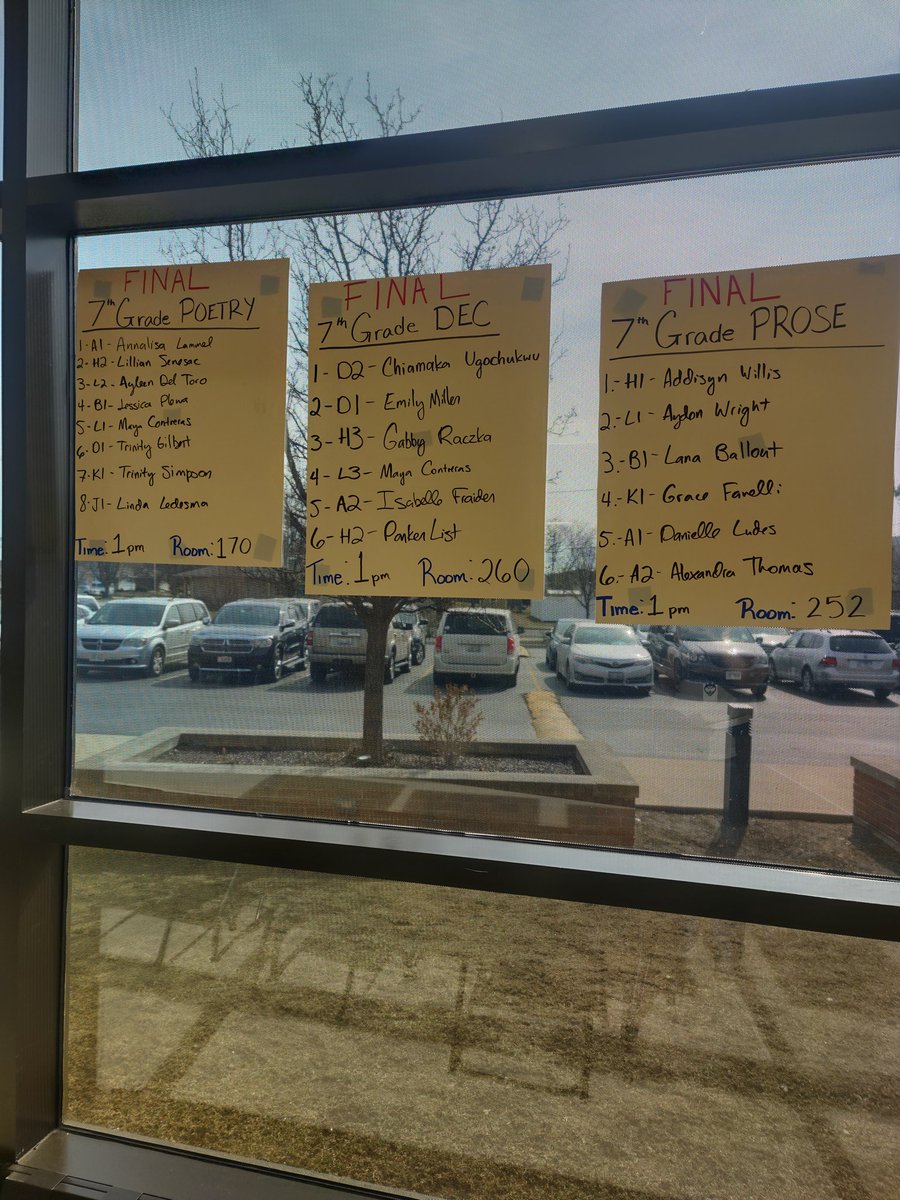 FINAL
7th Grade POETRY
1-A1- Annalisa Lammel
2-H2- Lillian Senesac
3-L2- Ayleen Del Toro
4-B1- Jessica
5-L1- Maya Contreras
6-O1- Trinity Gilbert
7-K1- Trinity Simpson
8-J1- Linda Ledesma
Time: 1pm Room: 170
FINAL
7th Grade DEC
1-D2- Chiamaka Ugochukwu
2-D1- Emily Miller
3-H3- Gabby Raczka
4-L3- Maya Contreras
5-A2- Isabelle Fraider
6-H2- Parker List
Time: 1pm Room: 260
FINAL
7th Grade PROSE
1.-H1- Addisyn Willis
2.-L1- Aydon Wright
3.-B1- Lana Ballout
4.-K1- Grace Fanelli
5.-A1- Danielle Ludes
6.-A2- Alexandra Thomas
Time: 1pm Room: 252